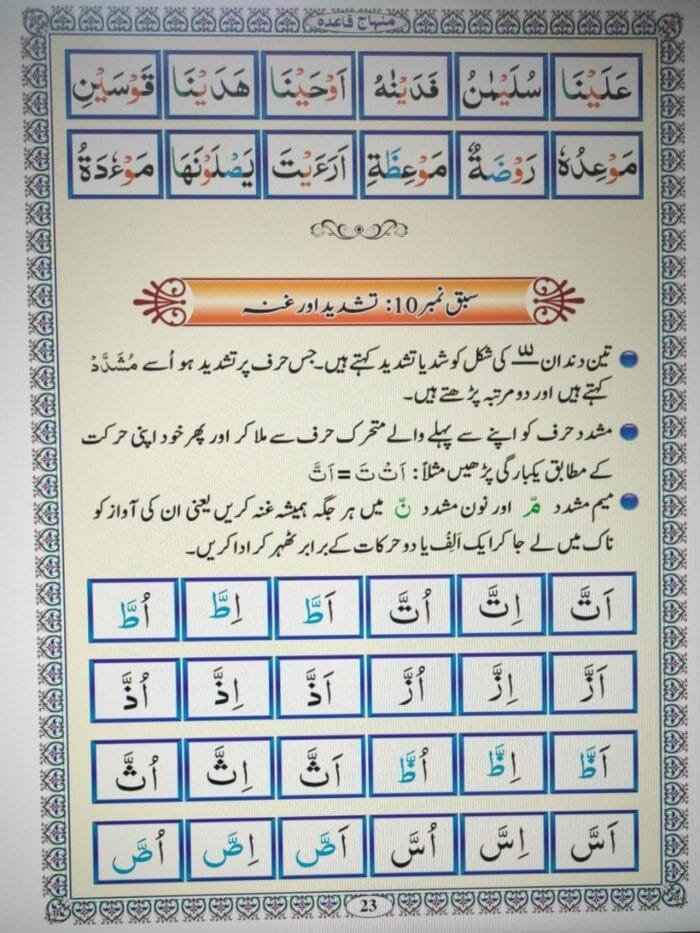 منہاج قاعدہ
عَلَیْنَا سُلَیْمٰنُ فَدَیْنٰهُ اَوْحَیْنَا هَدَیْنَا قَوْسَیْنِ
مَوْعِدُهٗ رَوْضَةٌ مَوْعِظَةٍ اَرَءَیْتَ یَصْلَوْنَهَا مَوْءٗدَةُ
سبق نمبر 10: تشدید اور غنہ
تین دندان ــّـ کی شکل کو شد یا تشدید کہتے ہیں۔ جس حرف پر تشدید ہو اُسے مُشَدَّدْ
کہتے ہیں اور دو مرتبہ پڑھتے ہیں۔
مشدد حرف کو اپنے سے پہلے والے متحرک حرف سے ملا کر اور پھر خود اپنی حرکت
کے مطابق یکبارگی پڑھیں مثلاً: اَتْ تَ = اَتَّ
میم مشدد مّ اور نون مشدد نّ میں ہر جگہ ہمیشہ غنہ کریں یعنی ان کی آواز کو
ناک میں لے جا کر ایک اَلِفْ یا دو حرکات کے برابر ٹھہر کر ادا کریں۔
اَتَّ اِتَّ اُتَّ اَطَّ اِطَّ اُطَّ
اَزَّ اِزَّ اُزَّ اَذَّ اِذَّ اُذَّ
اَظَّ اِظَّ اُظَّ اَثَّ اِثَّ اُثَّ
اَسَّ اِسَّ اُسَّ اَصَّ اِصَّ اُصَّ
23